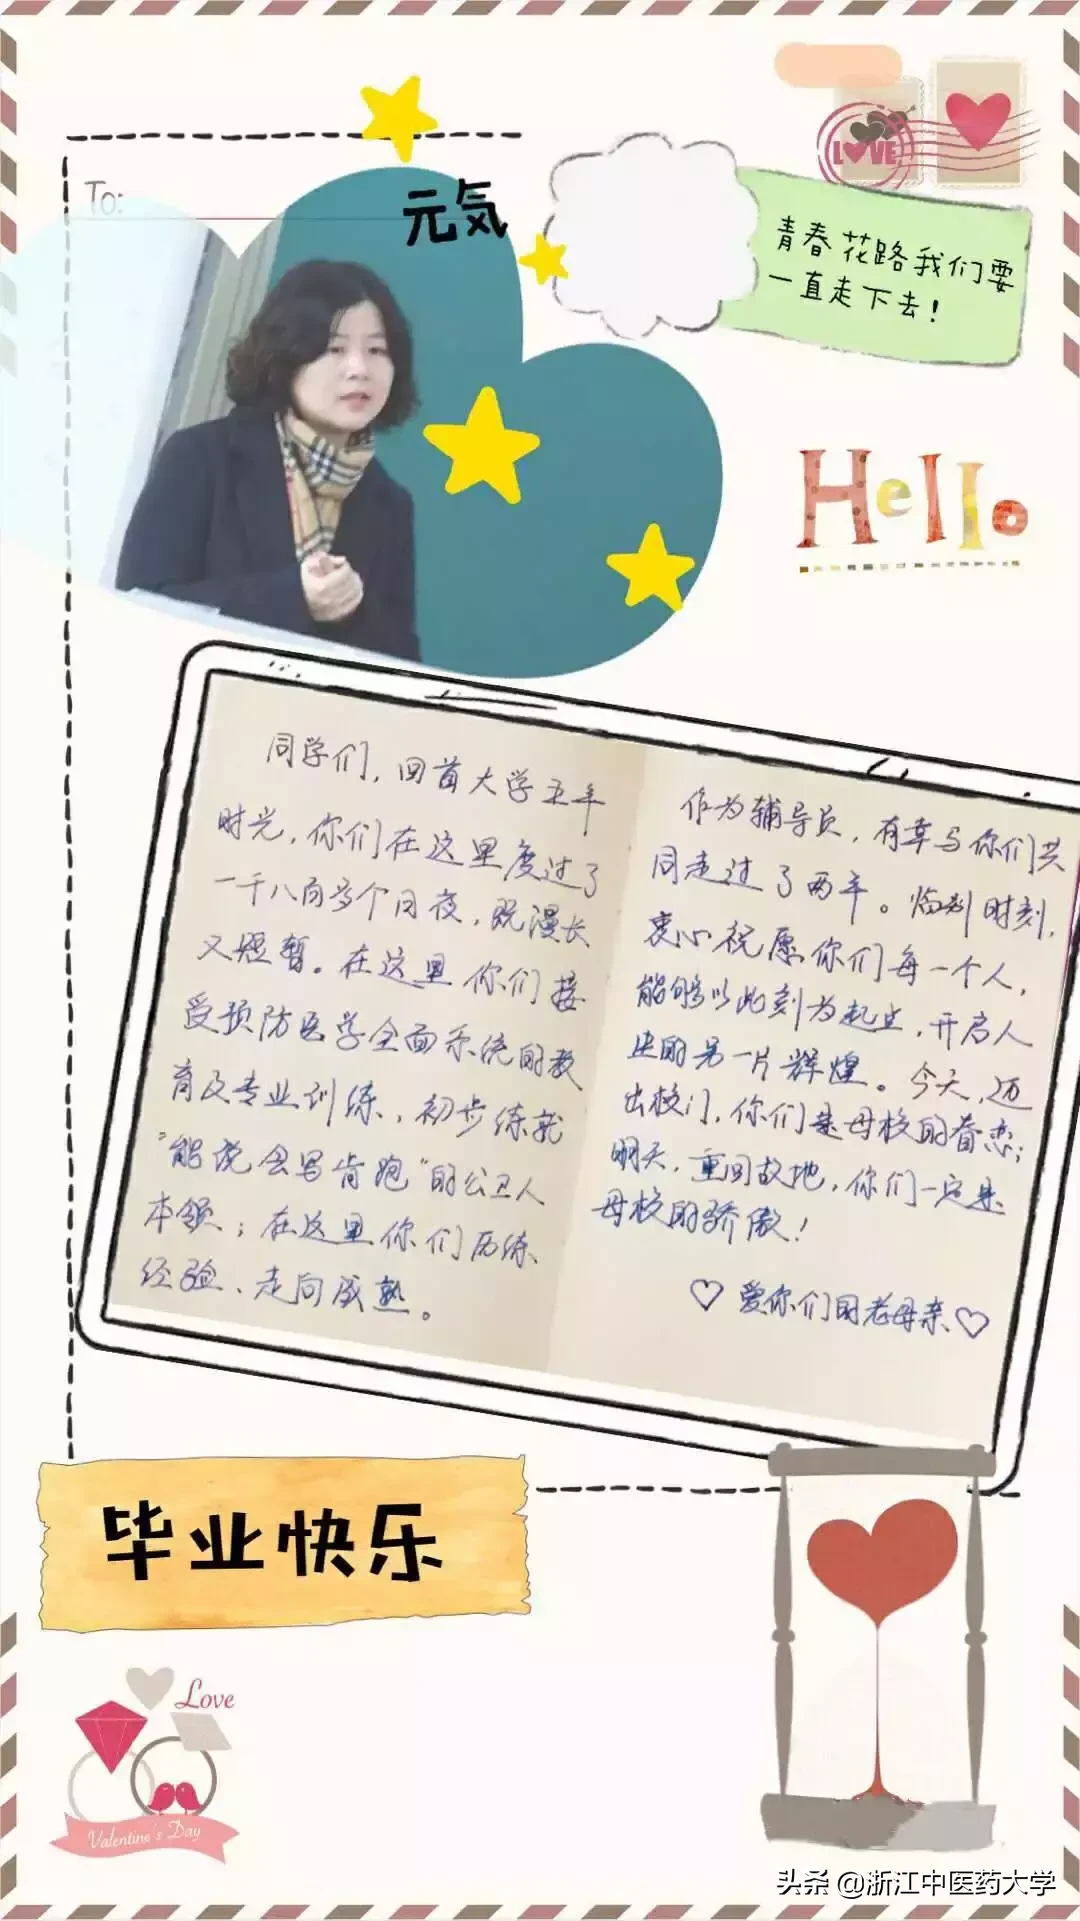 To:
元気
LOVE
青春花路我们要
一直走下去！
Hello
同学们，回首大学五年
时光，你们在这里度过了
一千八百多个日夜，既漫长
又短暂。在这里你们接
受预防医学全面系统的教
育及专业训练，初步练就
“能说会写肯跑”的公卫人
本领；在这里你们历练
经验、走向成熟。
作为辅导员，有幸与你们共
同走过了两年。临别时刻，
衷心祝愿你们每一个人，
能够以此刻为起点，开启人
生的另一片辉煌。今天，迈
出校门，你们是母校的眷恋；
明天，重回故地，你们一定是
母校的骄傲！
♡爱你们的老母亲♡
毕业快乐
Love
Valentine's Day
头条 @浙江中医药大学